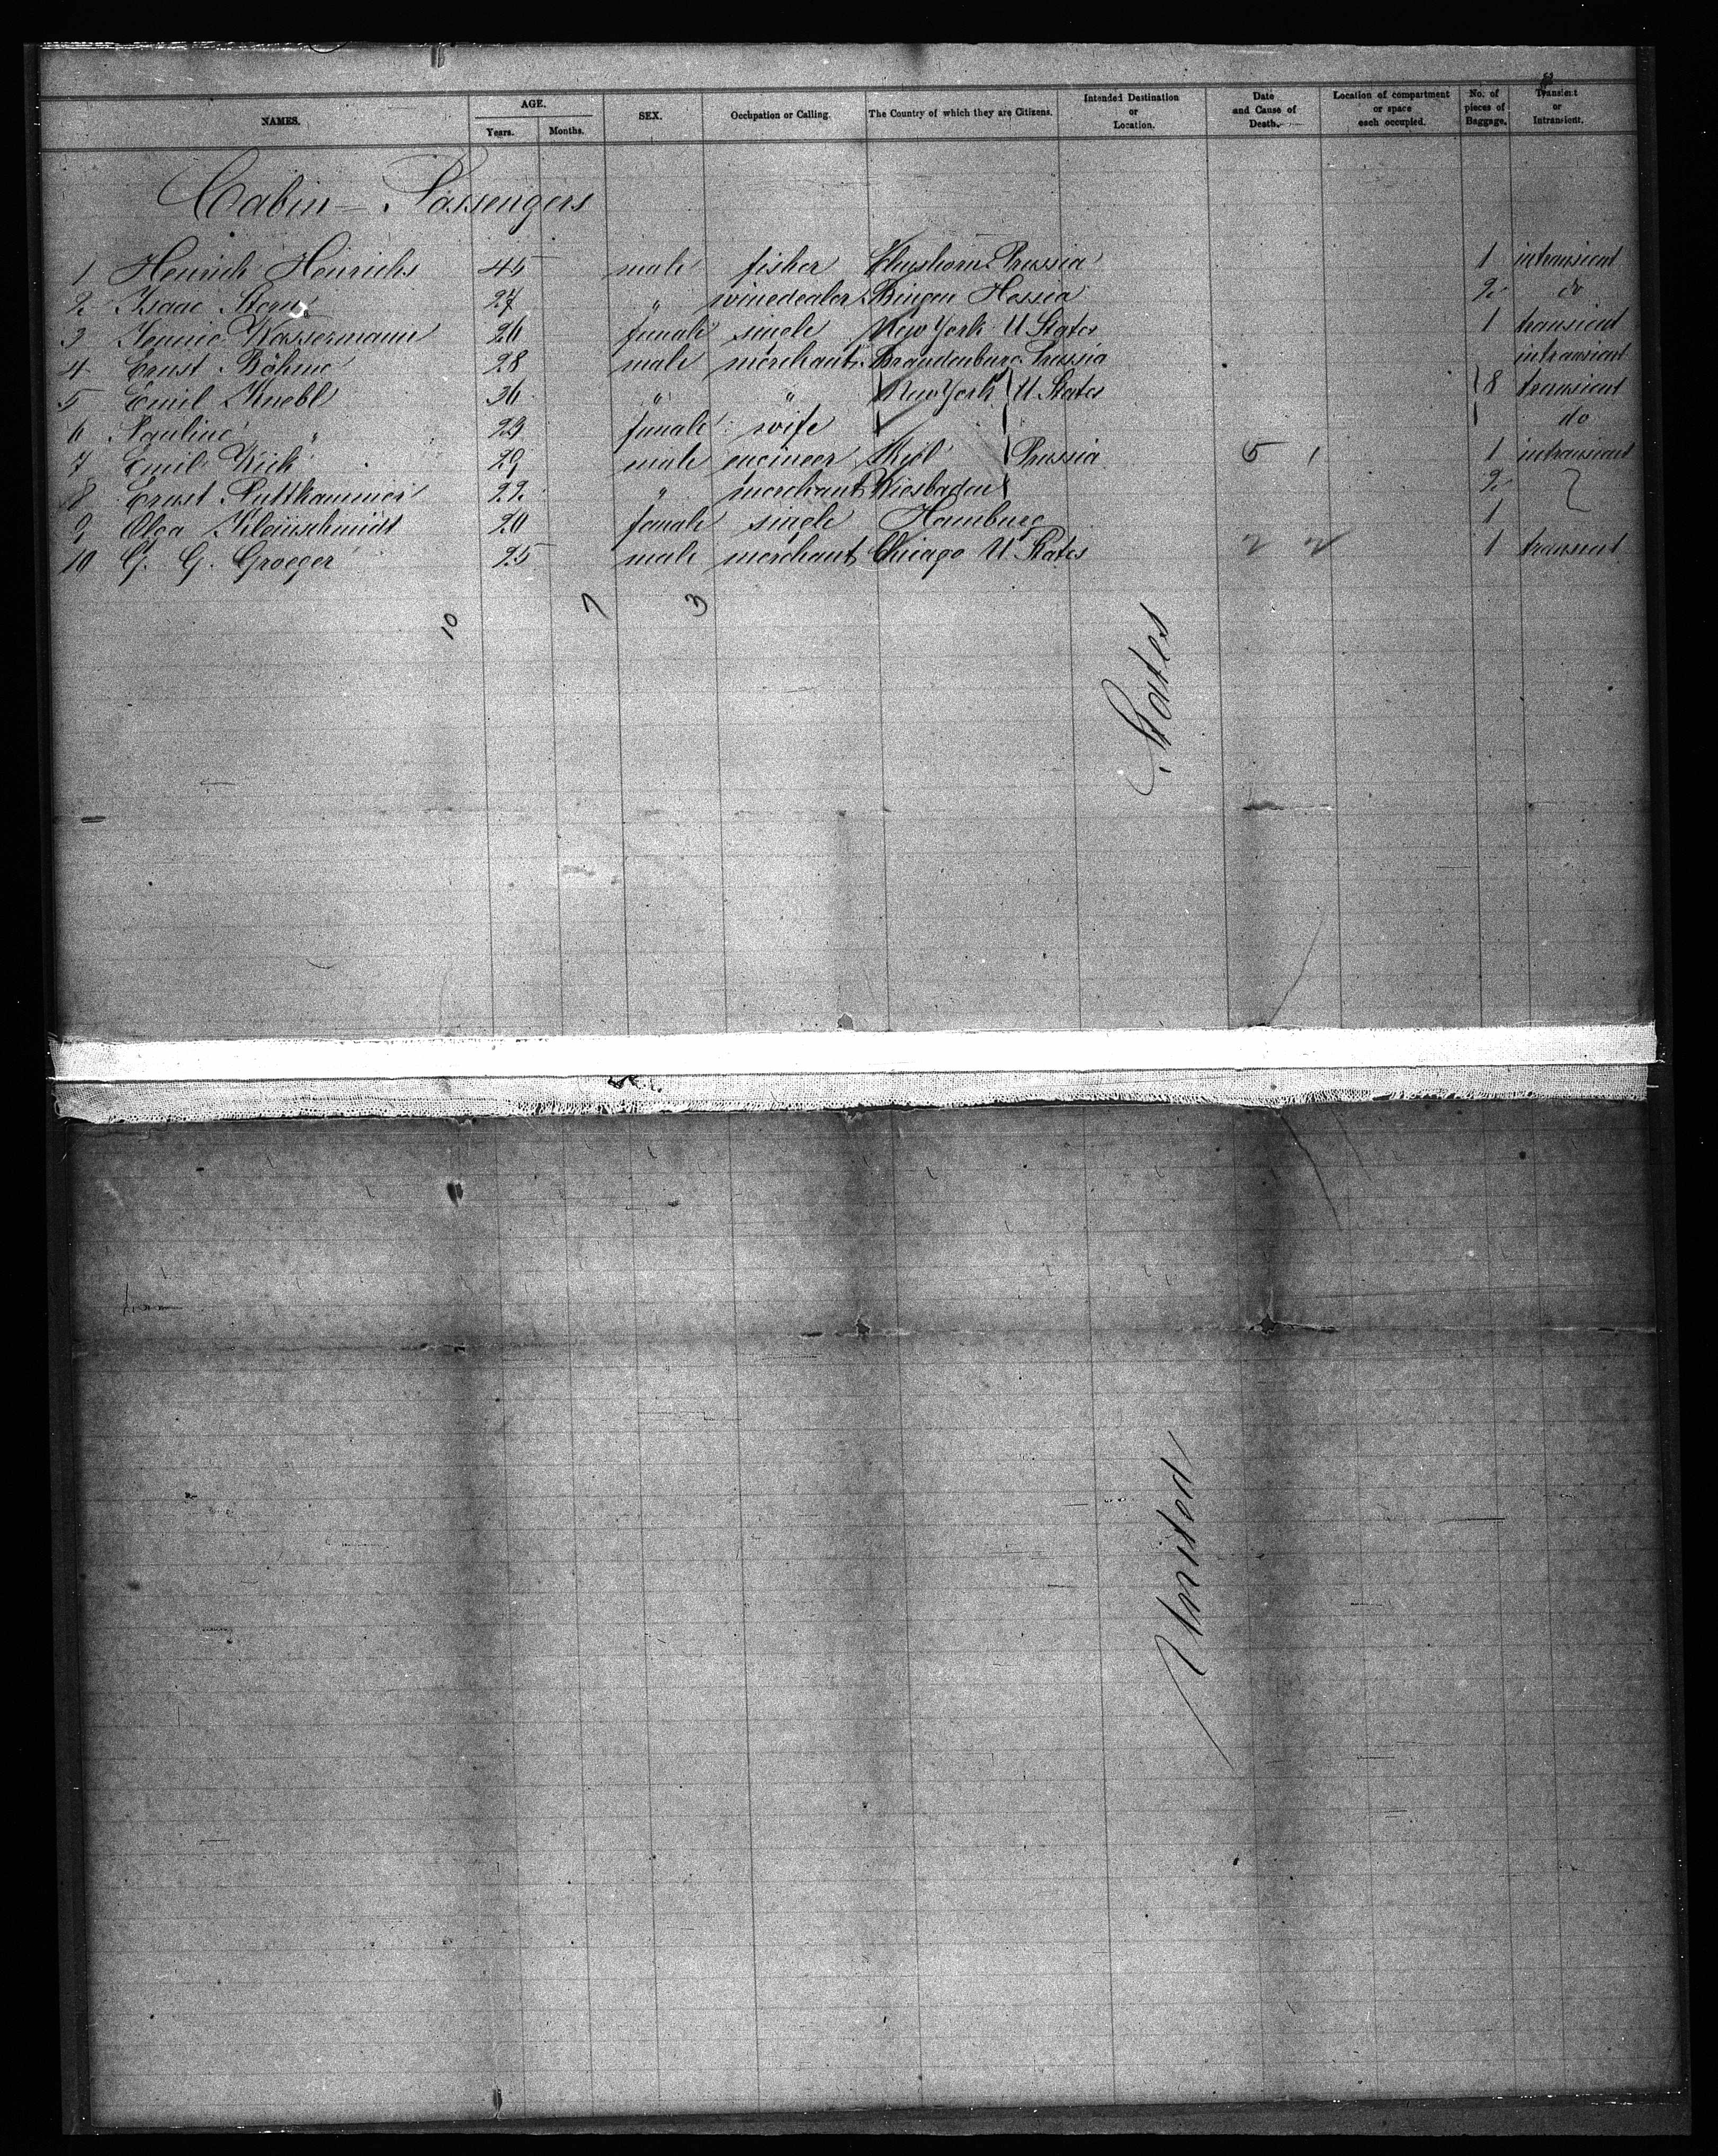 NAMES. AGE. Years. Months. SEX. Occupation or Calling. The Country of which they are Citizens. Intended Destination or Location. Date and Cause of Death. Location of compartment or space each occupied. No. of pieces of Baggage. Transient or Intransient.
Cabin - Passengers
1 Heinrich Heinrichs 45 male fisher Elmshorn Prussia 1 intransient
2 Isaac Stern 27 " winedealer Bingen Hessia 2 do
3 Jennie Wassermann 26 female single New York U States 1 transient
4 Ernst Böhme 28 male merchant Brandenburg Prussia intransient
5 Emil Knebl 36 " " New York U States 8 transient
6 Pauline " 29 female wife do
7 Emil Kick 29 male engineer Kiel Prussia 5 1 1 intransient
8 Ernst Puttkammer 22 " merchant Wiesbaden 2
9 Olga Kleinschmidt 20 female single Hamburg 1
10 G. G. Groeger 25 male merchant Chicago U States 2 2 1 transient
10 7 3
United States